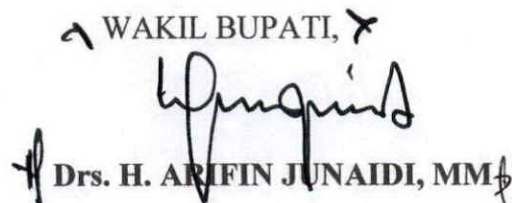 WAKIL BUPATI,
Drs. H. ARIFIN JUNAIDI, MM